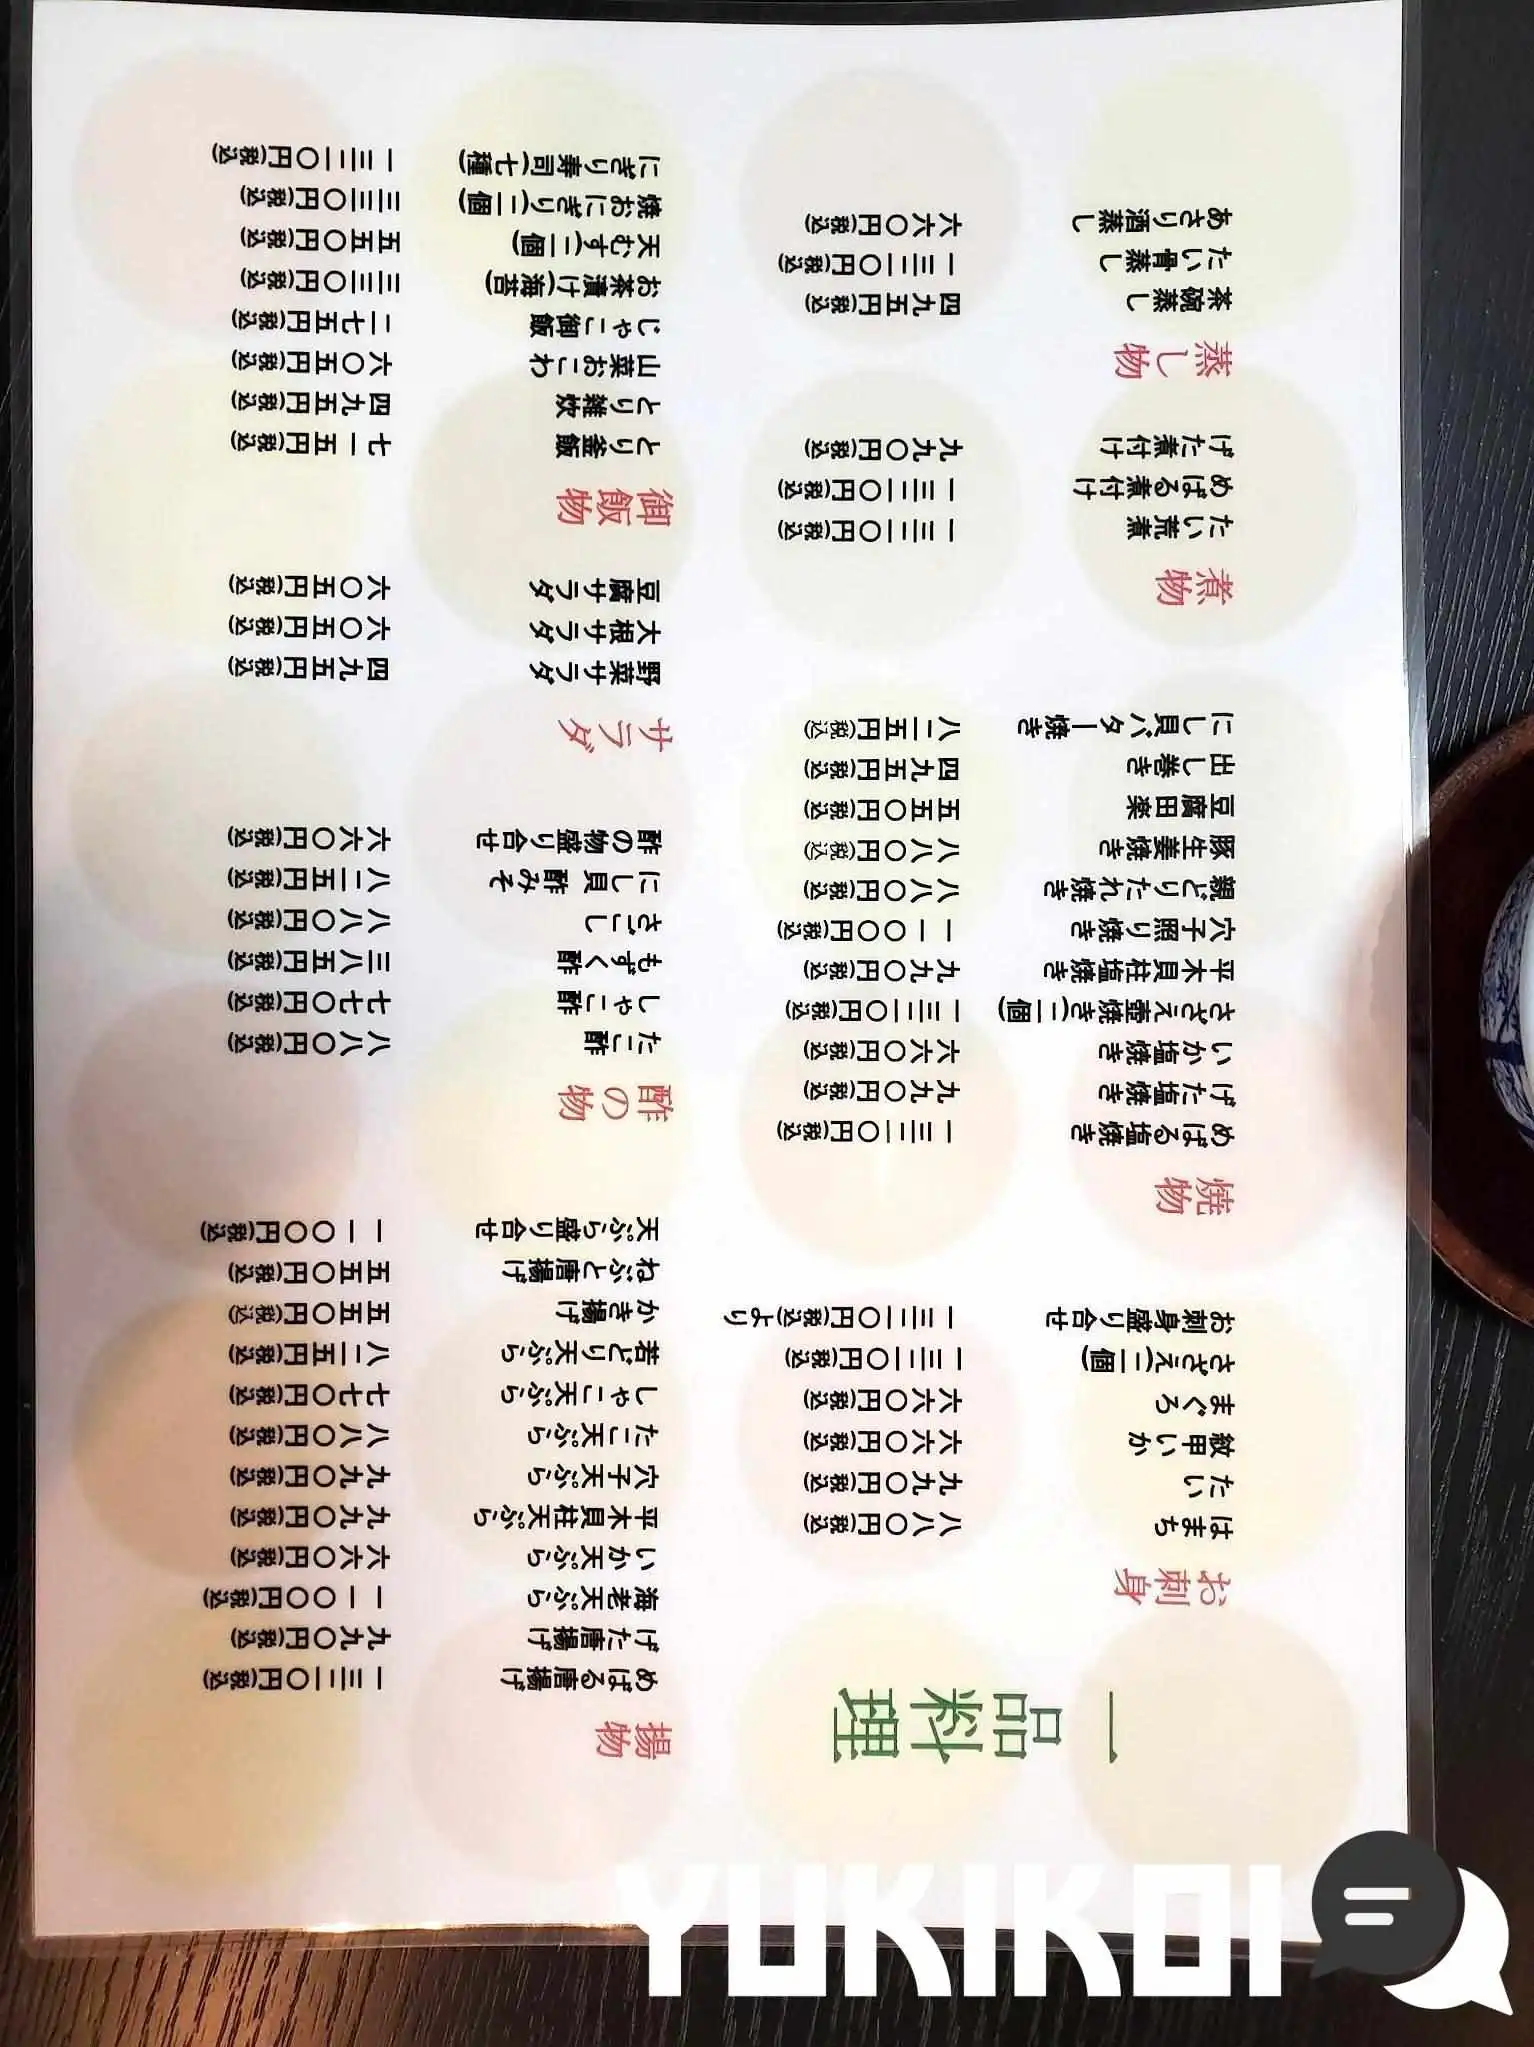 一品料理
お刺身
はまち 八八〇円(税込)
たい 九九〇円(税込)
紋甲いか 六六〇円(税込)
まぐろ 六六〇円(税込)
さざえ(二個) 一三二〇円(税込)
お刺身盛り合せ 一三二〇円(税込)より
焼物
めばる塩焼き 一三二〇円(税込)
げた塩焼き 九九〇円(税込)
いか塩焼き 六六〇円(税込)
さざえ壺焼き(二個) 一三二〇円(税込)
平木貝柱塩焼き 九九〇円(税込)
穴子照り焼き 一一〇〇円(税込)
親どりたれ焼き 八八〇円(税込)
豚生姜焼き 八八〇円(税込)
豆腐田楽 五五〇円(税込)
出し巻き 四九五円(税込)
にし貝バター焼き 八二五円(税込)
煮物
たい荒煮 一三二〇円(税込)
めばる煮付け 一三二〇円(税込)
げた煮付け 九九〇円(税込)
蒸し物
茶碗蒸し 四九五円(税込)
たい骨蒸し 一三二〇円(税込)
あさり酒蒸し 六六〇円(税込)
揚物
めばる唐揚げ 一三二〇円(税込)
げた唐揚げ 九九〇円(税込)
海老天ぷら 一一〇〇円(税込)
いか天ぷら 六六〇円(税込)
平木貝柱天ぷら 九九〇円(税込)
穴子天ぷら 九九〇円(税込)
たこ天ぷら 八八〇円(税込)
しゃこ天ぷら 七七〇円(税込)
若どり天ぷら 八二五円(税込)
かき揚げ 五五〇円(税込)
ねぶと唐揚げ 五五〇円(税込)
天ぷら盛り合せ 一一〇〇円(税込)
酢の物
たこ酢 八八〇円(税込)
しゃこ酢 七七〇円(税込)
もずく酢 三八五円(税込)
さごし 八八〇円(税込)
にし貝 酢みそ 八二五円(税込)
酢の物盛り合せ 六六〇円(税込)
サラダ
野菜サラダ 四九五円(税込)
大根サラダ 六〇五円(税込)
豆腐サラダ 六〇五円(税込)
御飯物
とり釜飯 七一五円(税込)
とり雑炊 四九五円(税込)
山菜おこわ 六〇五円(税込)
じゃこ御飯 二七五円(税込)
お茶漬け(海苔) 三三〇円(税込)
天むす(二個) 五五〇円(税込)
焼おにぎり(二個) 三三〇円(税込)
にぎり寿司(七種) 一三二〇円(税込)
YUKIKOI